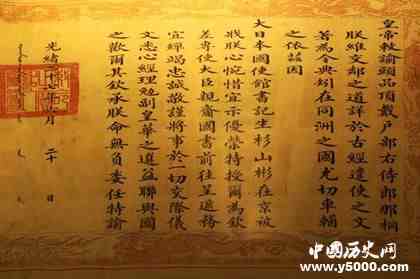 皇帝敕諭頭品頂戴戶部右侍郎那桐
朕維交鄰之道詳於古經遣使之文
著為令典矧在同洲之國尤切車輔
之依茲因
大日本國使館書記生杉山彬在京被
戕朕心惋惜宜示優榮特授爾為欽
差專使大臣親齎國書前往呈遞務
宜殫竭忠誠敬謹將事於一切交際儀
文悉心經理勉副皇華之選益聯與國
之歡爾其欽承朕命無負委任特諭
光緒 七年 月 二十 日
中国历史网
www.y5000.com